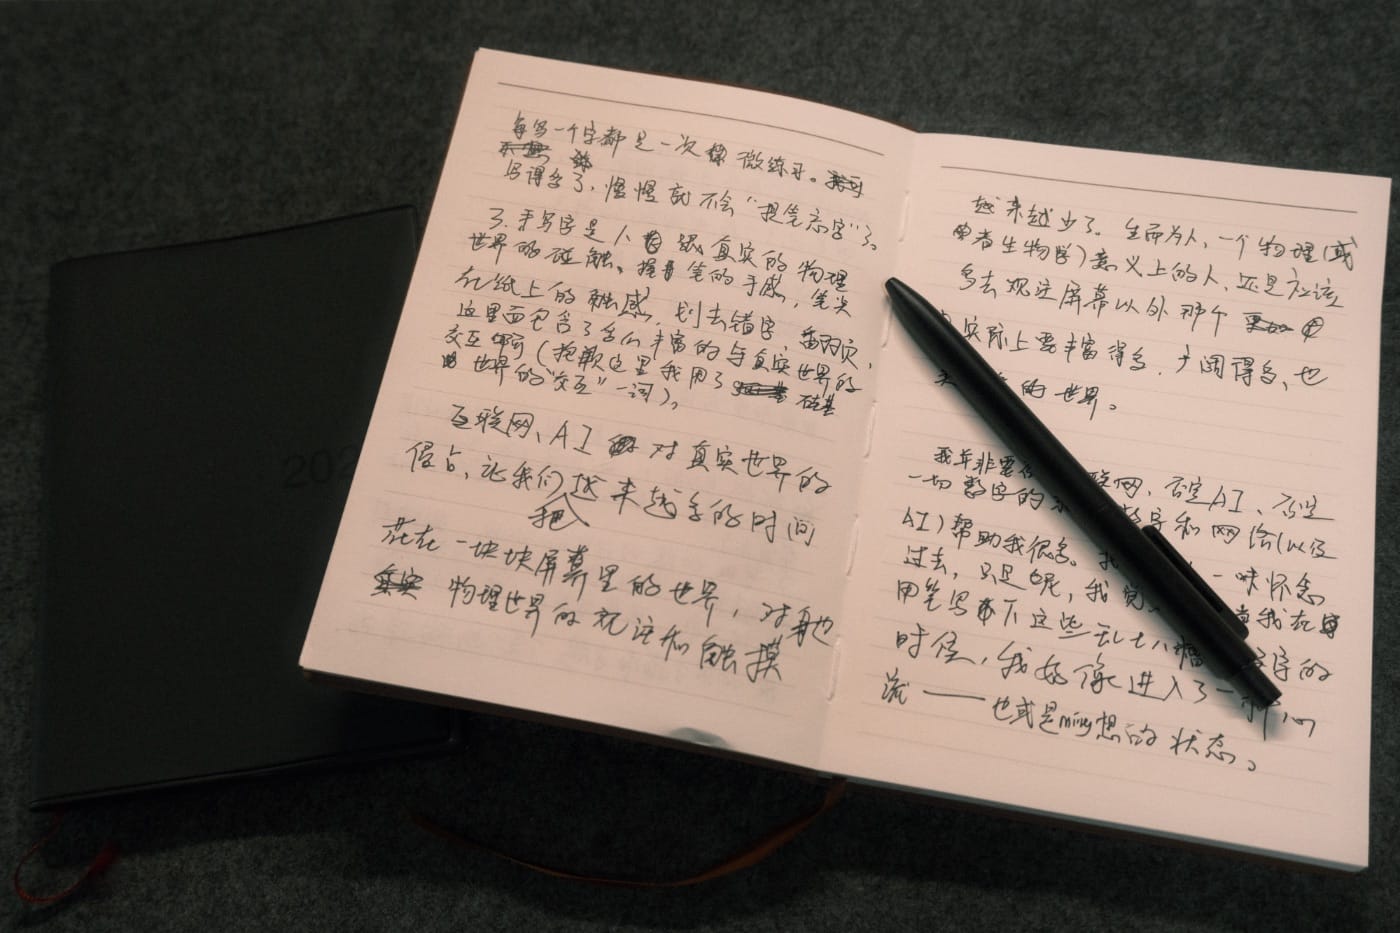 每写一个字都是一次微练习。
写得多了，慢慢就不会“提笔忘字”了。
3. 手写字是人跟真实的物理
世界的碰触。握笔的手感，笔尖
在纸上的触感，划去错字，翻页，
这里面包含了多么丰富的与真实世界的
交互啊（抱歉这里我用了硅基
世界的“交互”一词）。
互联网、AI 对真实世界的
侵占，让我们把越来越多的时间
花在一块块屏幕里的世界，对其他
物理世界的观注和触摸
202
越来越少了。生而为人，一个物理（或
者生物学）意义上的人，还是应该
多去观注屏幕以外那个
实际上要丰富得多，广阔得多，也
的世界。
我并非要 联网、否定AI、否定
一切数字的 数字和网络（以及
AI）帮助我很多。我 一味怀念
过去，只是呢，我觉 当我在
用笔写下这些乱七八糟 字的
时候，我好像进入了一种心
流——也或是míng想的状态。